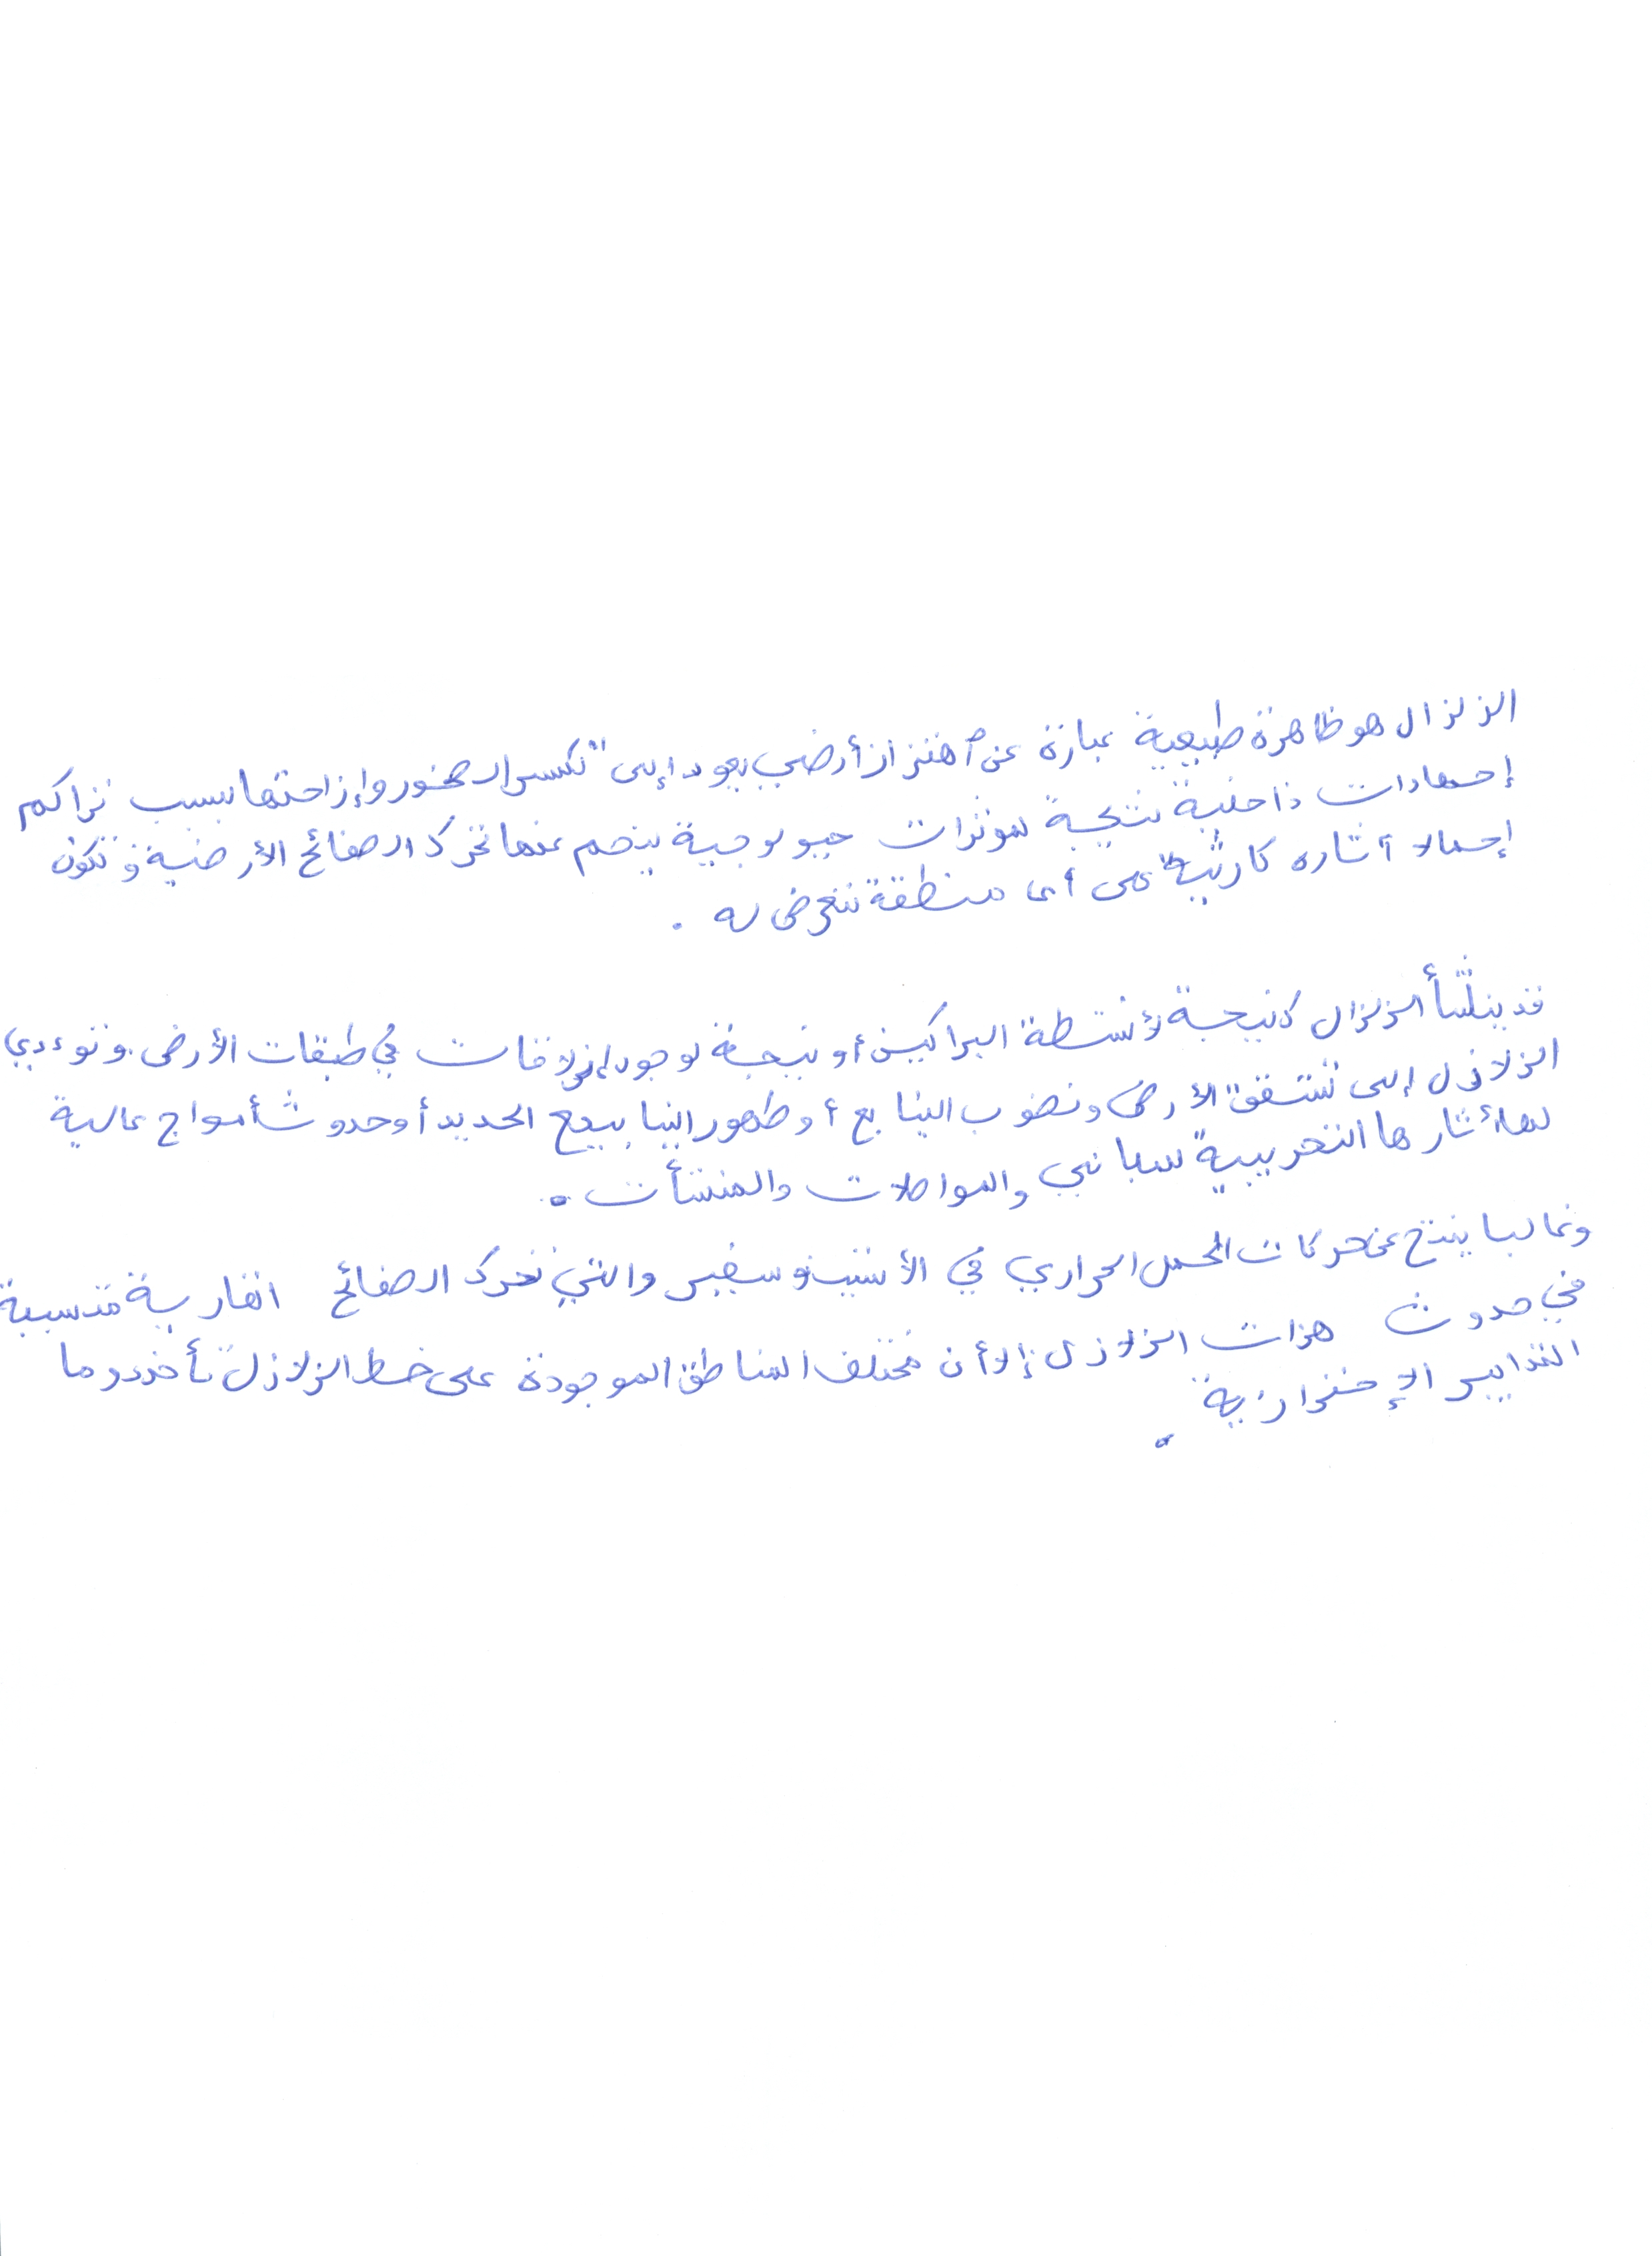 الزلزال هو ظاهرة طبيعية عبارة عن اهتزاز أرضي يعود إلى تكسر الصخور وإزاحتها بسبب تراكم
إجهادات داخلية نتيجة لمؤثرات جيولوجية ينجم عنها تحرك الصفائح الأرضية وتكون
إجمالا آثاره كارثية على أي منطقة تتعرض له .
قد ينشأ الزلزال كنتيجة لأنشطة البراكين أو نتيجة لوجود إنزلاقات في طبقات الأرض. وتوءدي
الزلازل إلى تشقق الأرض ونضوب الينابع أو ظهور الينابيع الجديد أوحدوث أمواج عالية
لها أثارها التخريبية للمباني والمواصلات والمنشأت .
وغالبا ينتج عن حركات الحمل الحراري في الأستينوسفير والتي تحرك الصفائح القارية متسببة
في حدوث هزات الزلازل إلا أن مختلف المناطق الموجودة على خط الزلازل تأخذ دوما
التدابير الإحترازية .